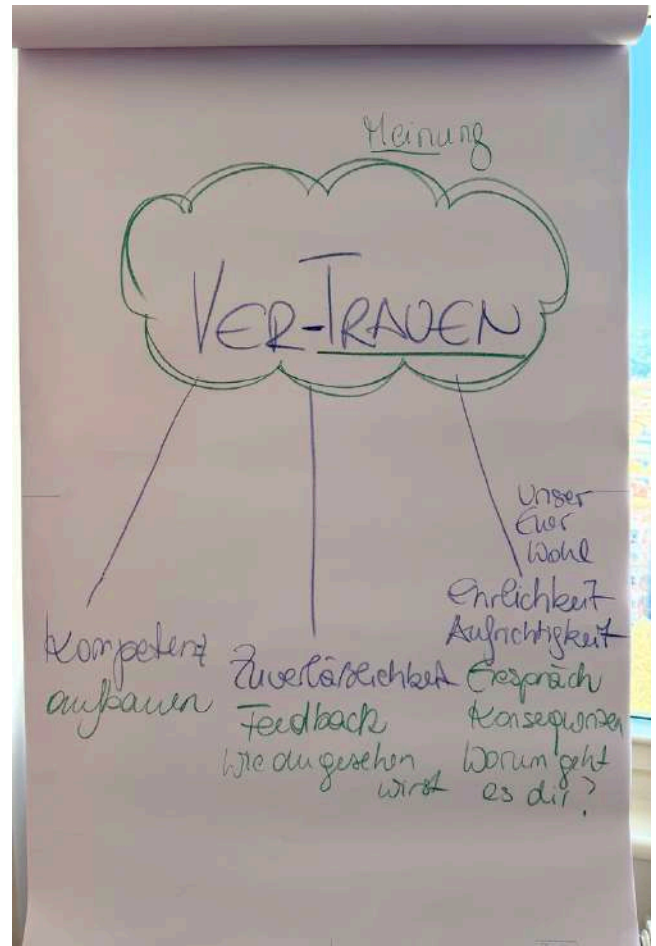 Meinung
VER-TRAUEN
Unser
Euer
Wohl
Kompetenz
aufbauen
Zuverläßlichkeit
Feedback
Wie du gesehen
wirst
Ehrlichkeit
Aufrichtigkeit
Gespräch
Konsequenzen
Worum geht
es dir?